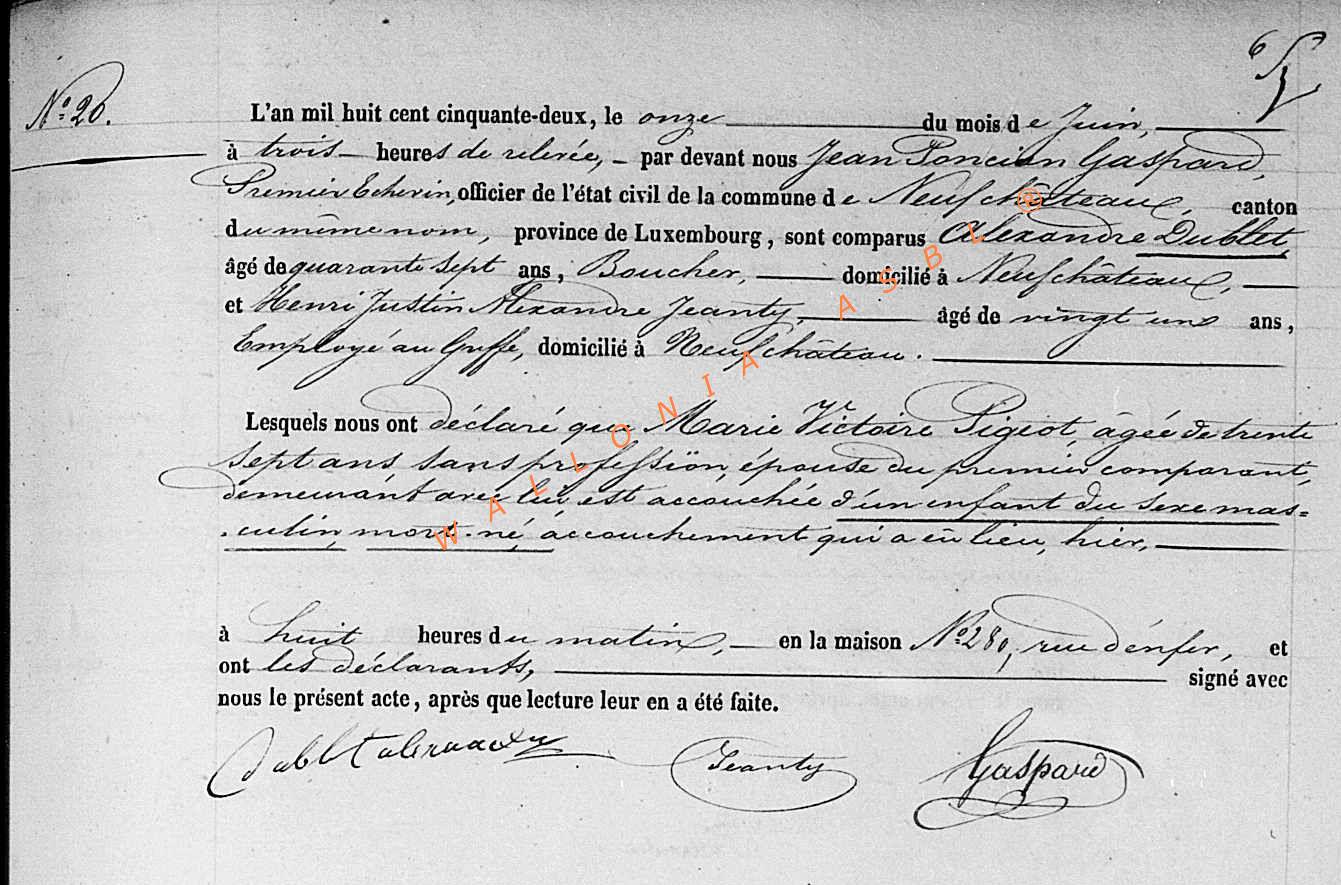 N° 20.
L'an mil huit cent cinquante-deux, le onze du mois de Juin,
à trois heures de relevée, par devant nous Jean Poncian Gaspard,
Premier Echevin, officier de l'état civil de la commune de Neufchâteau, canton
du même nom, province de Luxembourg, sont comparus Alexandre Dublet,
âgé de quarante sept ans, Boucher, domicilié à Neufchâteau,
et Henri Justin Alexandre Jeanty, âgé de vingt un ans,
Employé au Greffe, domicilié à Neufchâteau.
Lesquels nous ont déclaré que Marie Victoire Pigeot, âgée de trente
sept ans, sans profession, épouse du premier comparant,
demeurant avec lui, est accouchée d'un enfant du sexe mas=
culin, mort-né, accouchement qui a eu lieu, hier,
à huit heures du matin, en la maison N° 280, rue d'enfer, et
ont les déclarants, signé avec
nous le présent acte, après que lecture leur en a été faite.
Jeanty Gaspard
WALLONIA ASBL ®